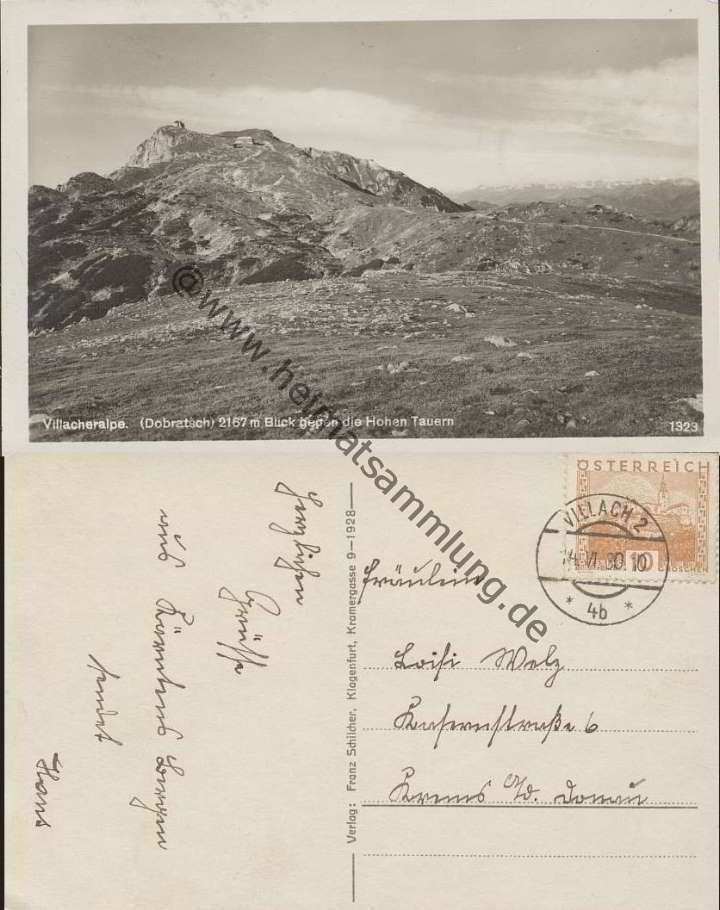 Villacheralpe. (Dobratsch) 2167 m Blick gegen die Hohen Tauern
1323
@www.heimatsammlung.de
Herzlichen
Grüsse
aus Kärntens Bergen
sendet
Hans
Verlag: Franz Schilcher, Klagenfurt, Kramergasse 9—1928—
ÖSTERREICH
10
VILLACH 2
14 VI 30 10
* 4b *
Fräulein
Loisi Welz
Kasernstraße 6
Krems a/d. Donau